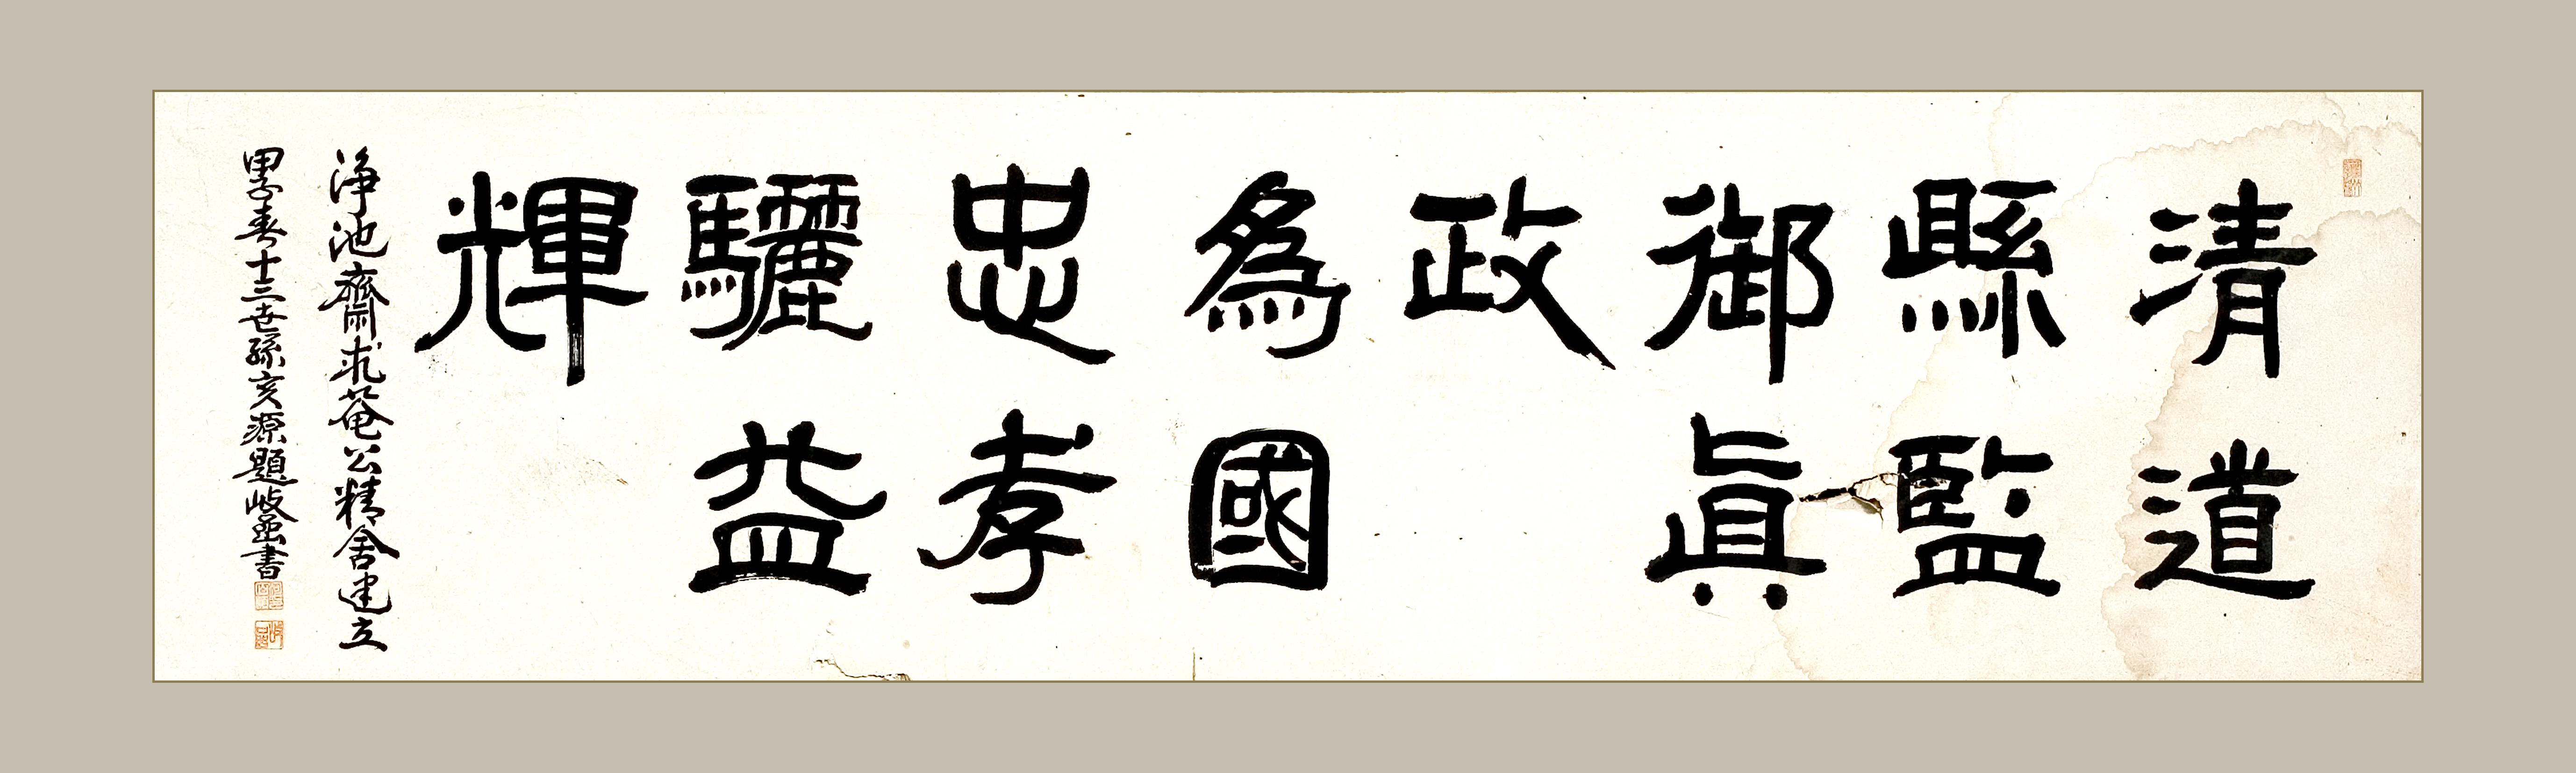 清道
縣監
御眞
政
爲國
忠孝
驪益
輝
淨池齋求菴公精舍建立
甲子春十三世孫亥源題岐 書